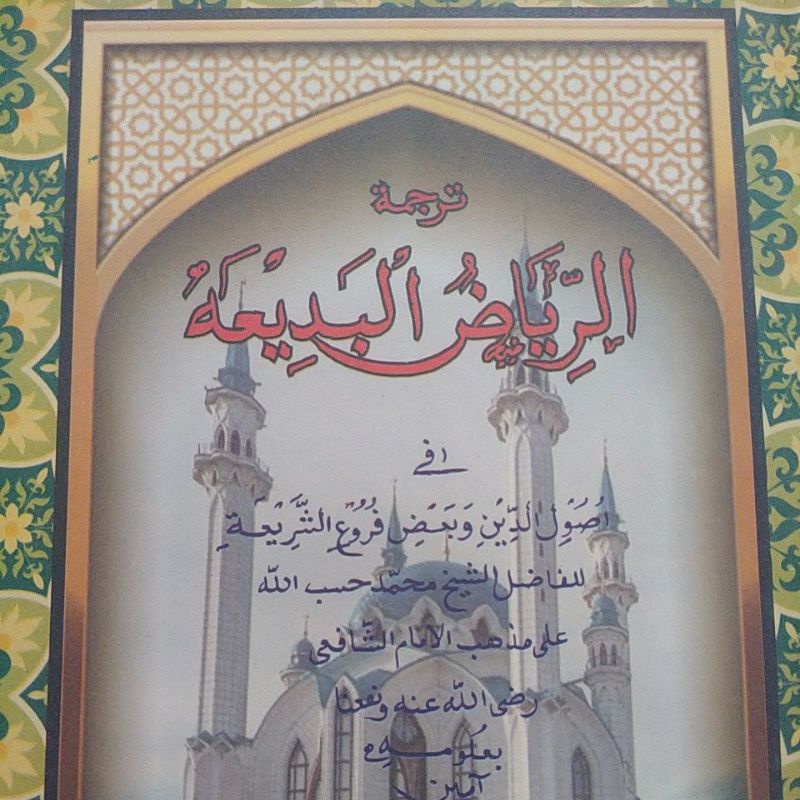 ترجمة
الرِّيَاضُ الْبَدِيْعَةُ
فى
اُصُوْلِ الدِّيْنِ وَبَعْضِ فُرُوْعِ الشَّرِيْعَةِ
للفاضل الشيخ محمّد حسب الله
على مذهب الامام الشّافعى
رضى الله عنه ونفعنا
بعُلُومه
آمين